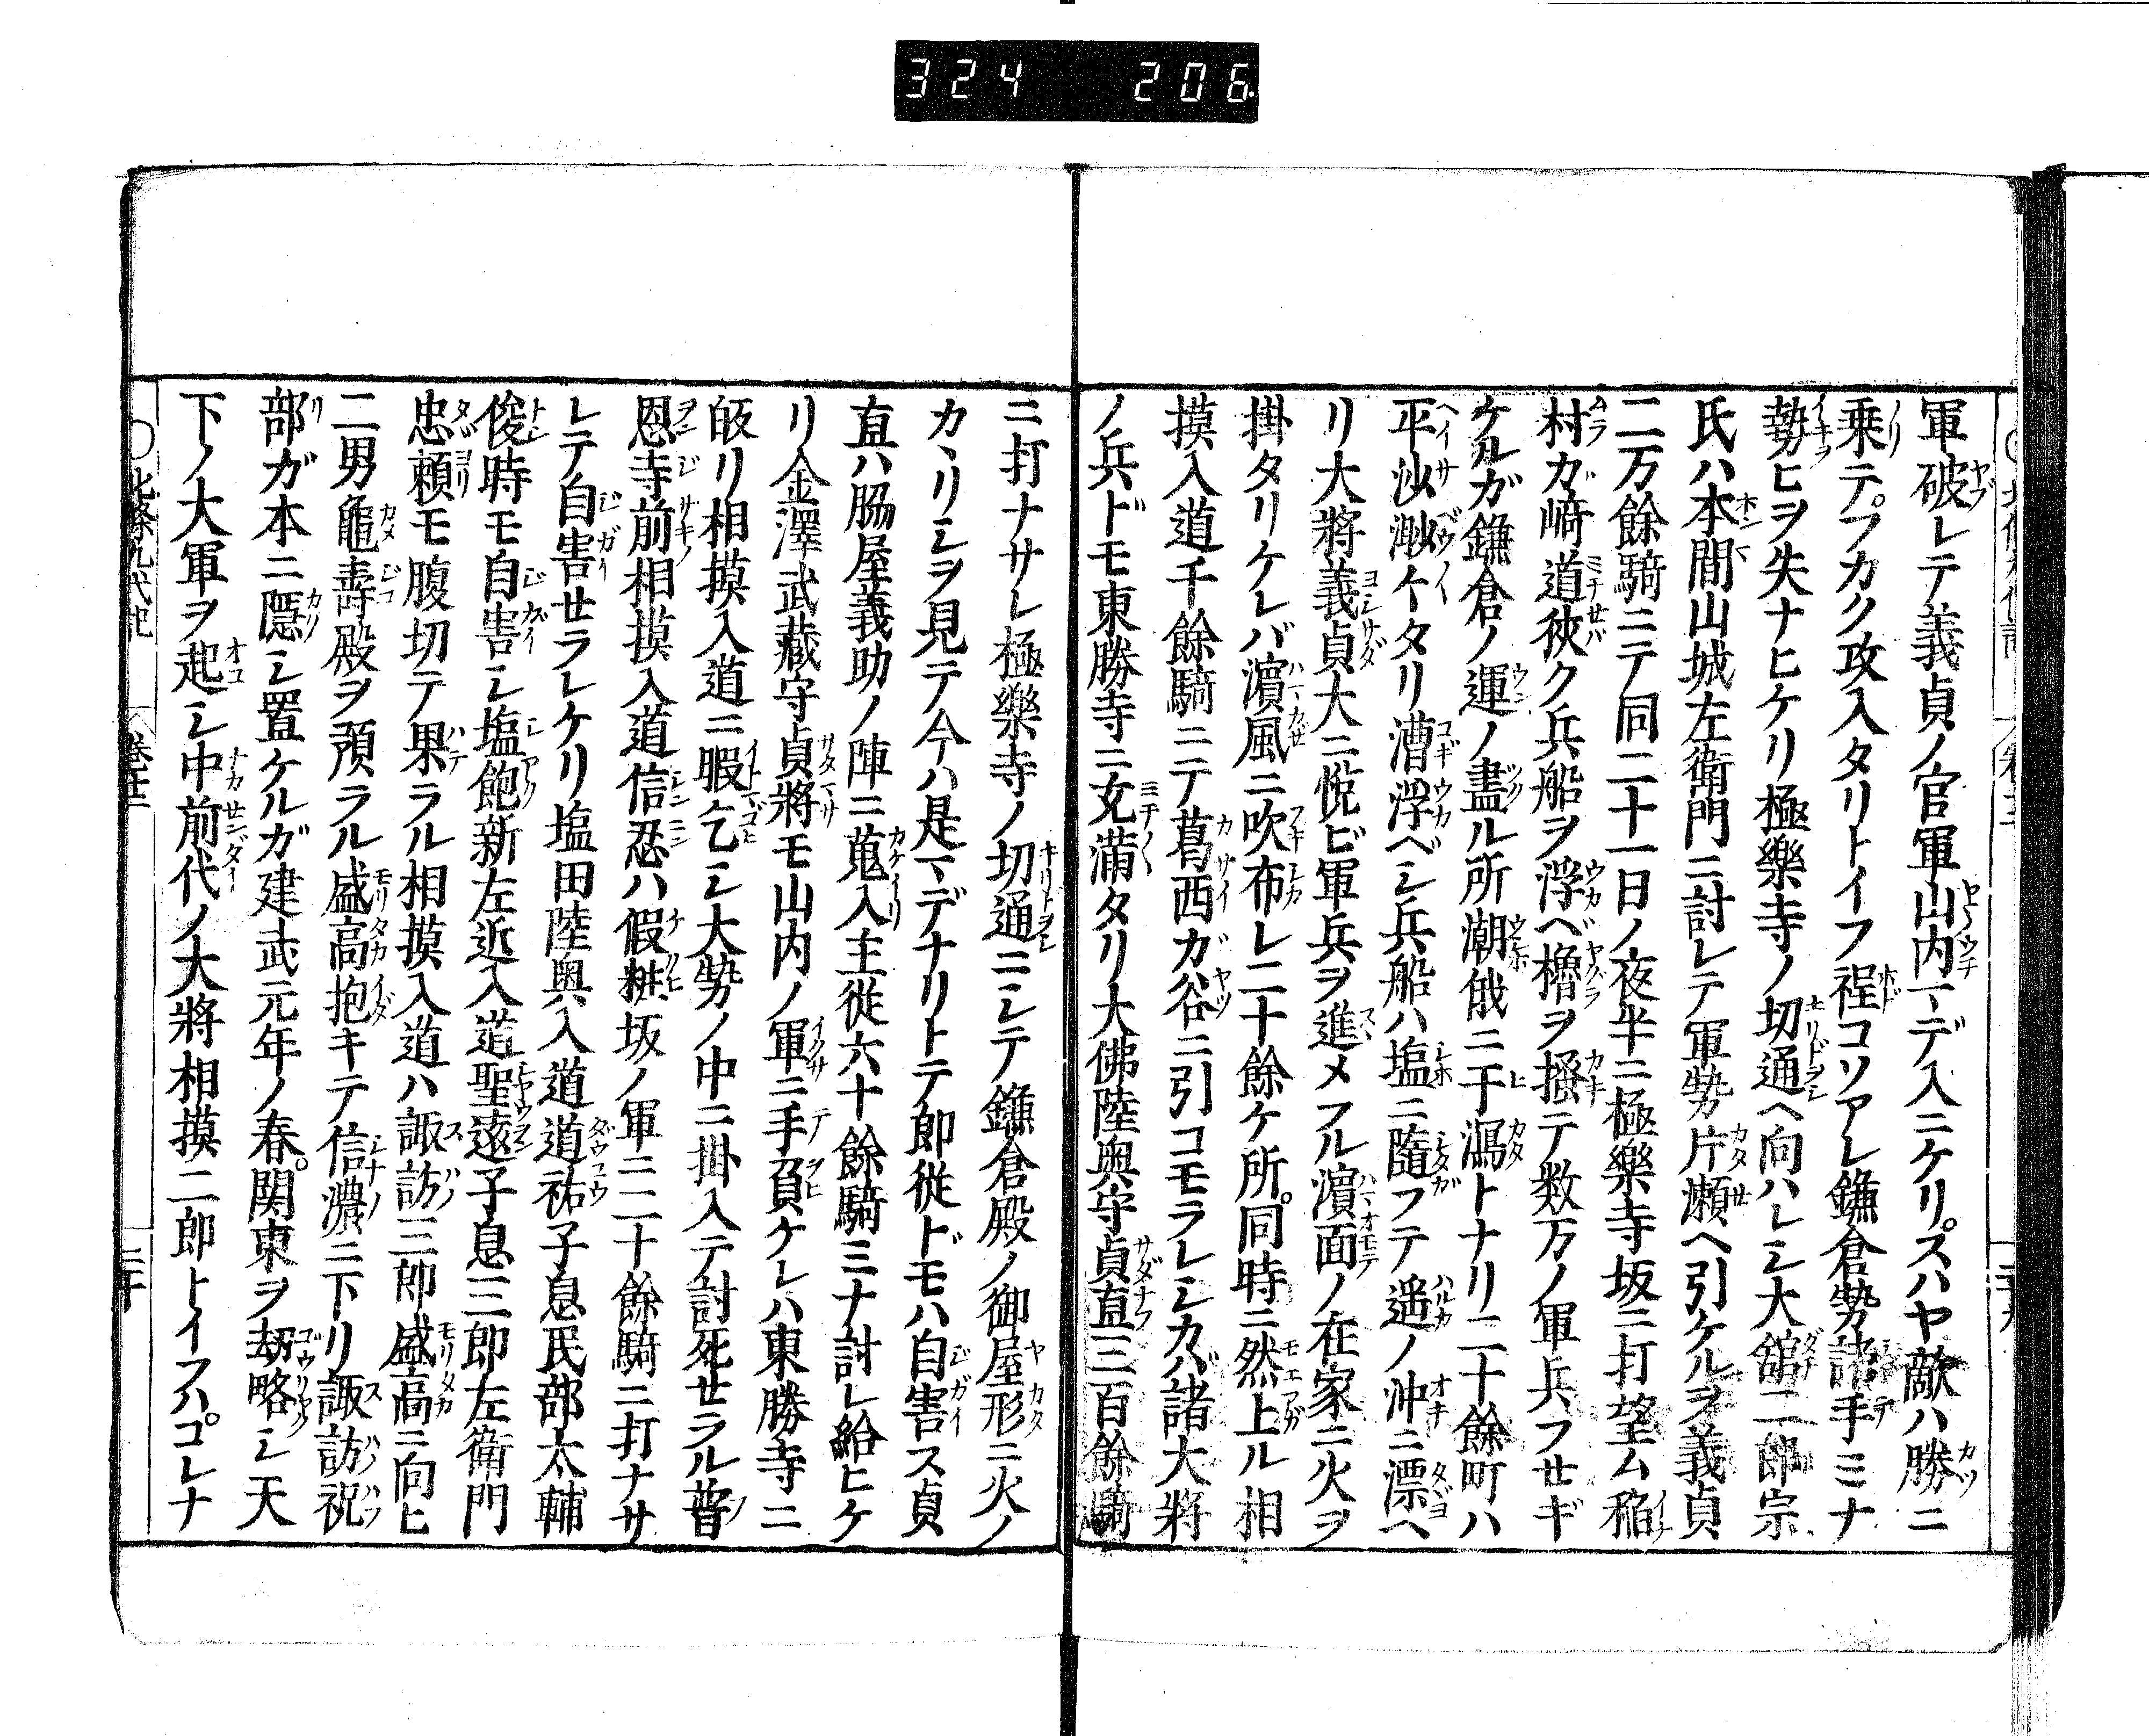 324 206
軍破レテ義貞ノ官軍山内マデ入ニケリスハヤ敵ハ勝ニ
乗テフカク攻入タリトイフ程コソアレ鎌倉勢諸手ミナ
勢ヒヲ失ナヒケリ極樂寺ノ切通ヘ向ハレシ大舘二郎宗
氏ハ本間山城左衛門ニ討レテ軍勢片瀬ヘ引ケルヲ義貞
二万餘騎ニテ同二十一日ノ夜半ニ極樂寺坂ニ打望ム稲
村ガ﨑道狹ク兵船ヲ浮ベ櫓ヲ搔テ数万ノ軍兵フセギ
ケルガ鎌倉ノ運ノ盡ル所潮俄ニ干瀉トナリ二十餘町ハ
平沙渺々タリ漕浮ベシ兵船ハ塩ニ隨フテ遥ノ沖ニ漂ヘ
リ大將義貞大ニ悦ビ軍兵ヲ進メフル濵面ノ在家ニ火ヲ
掛タリケレバ濵風ニ吹布レ二十餘ケ所同時ニ然上ル相
摸入道千餘騎ニテ葛西ガ谷ニ引コモラレシカバ諸大將
ノ兵ドモ東勝寺ニ充滿タリ大佛陸奥守貞直三百餘騎
ニ打ナサレ極樂寺ノ切通ニシテ鎌倉殿ノ御屋形ニ火ノ
カヽリシヲ見テ今ハ是マデナリトテ郎從ドモハ自害ス貞
直ハ脇屋義助ノ陣ニ蒐入主從六十餘騎ミナ討レ給ヒケ
リ金澤武蔵守貞將モ山内ノ軍ニ手負ケレハ東勝寺ニ
皈リ相摸入道ニ暇乞シ大勢ノ中ニ掛入テ討死セラル普
恩寺前相摸入道信忍ハ假粧坂ノ軍ニ二十餘騎ニ打ナサ
レテ自害セラレケリ塩田陸奥入道道祐子息民部太輔
俊時モ自害シ塩飽新左近入道聖遠子息三郎左衛門
忠頼モ腹切テ果ラル相摸入道ハ諏訪三郎盛高ニ向ヒ
二男龜壽殿ヲ預ラル盛高抱キテ信濃ニ下リ諏訪祝
部ガ本ニ隱シ置ケルガ建武元年ノ春関東ヲ劫略シ天
下ノ大軍ヲ起シ中前代ノ大將相摸二郎トイフハコレナ
北條九代記 卷十二